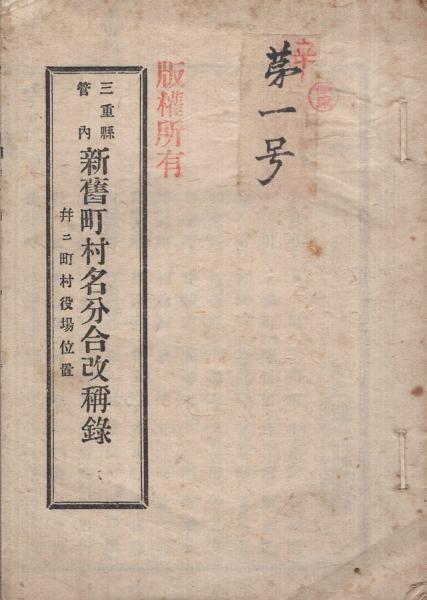 第一号
版權所有
三重縣管内
新舊町村名分合改稱錄
幷ニ町村役場位置